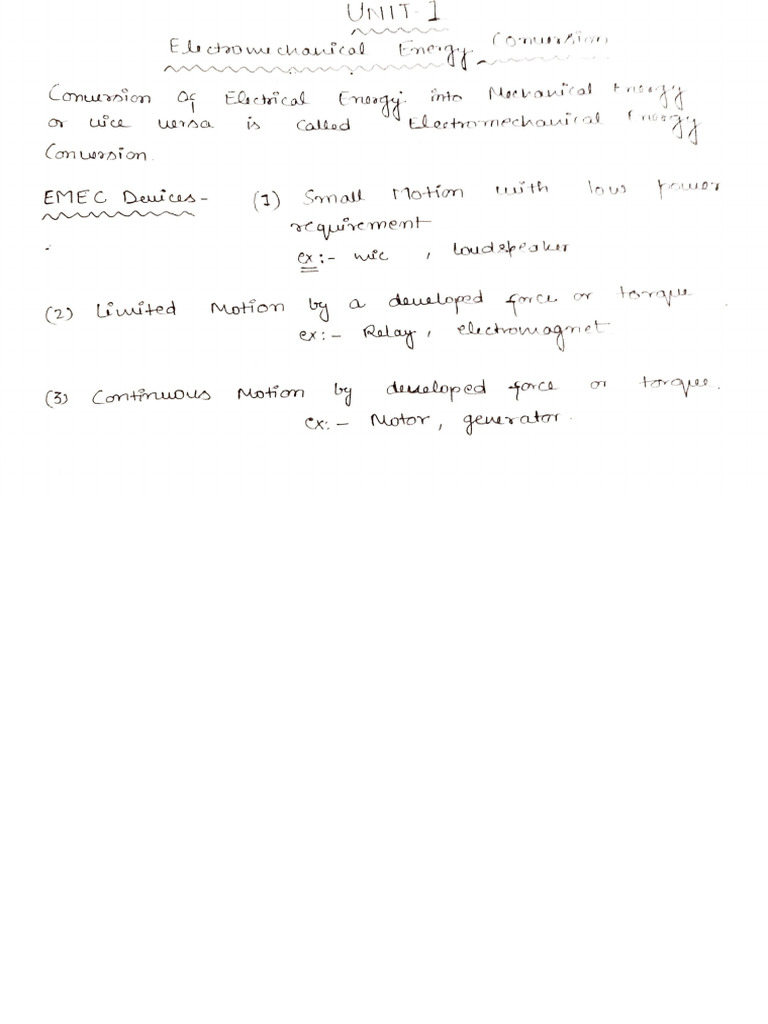 UNIT-1
Electromechanical Energy Conversion
Conversion Of Electrical Energy into Mechanical Energy
or vice versa is called Electromechanical Energy
Conversion.
EMEC Devices- (1) Small Motion with low power
requirement
ex:- mic , loudspeaker
(2) Limited Motion by a developed force or torque
ex:- Relay, electromagnet
(3) Continuous Motion by developed force or torque.
ex:- Motor, generator.